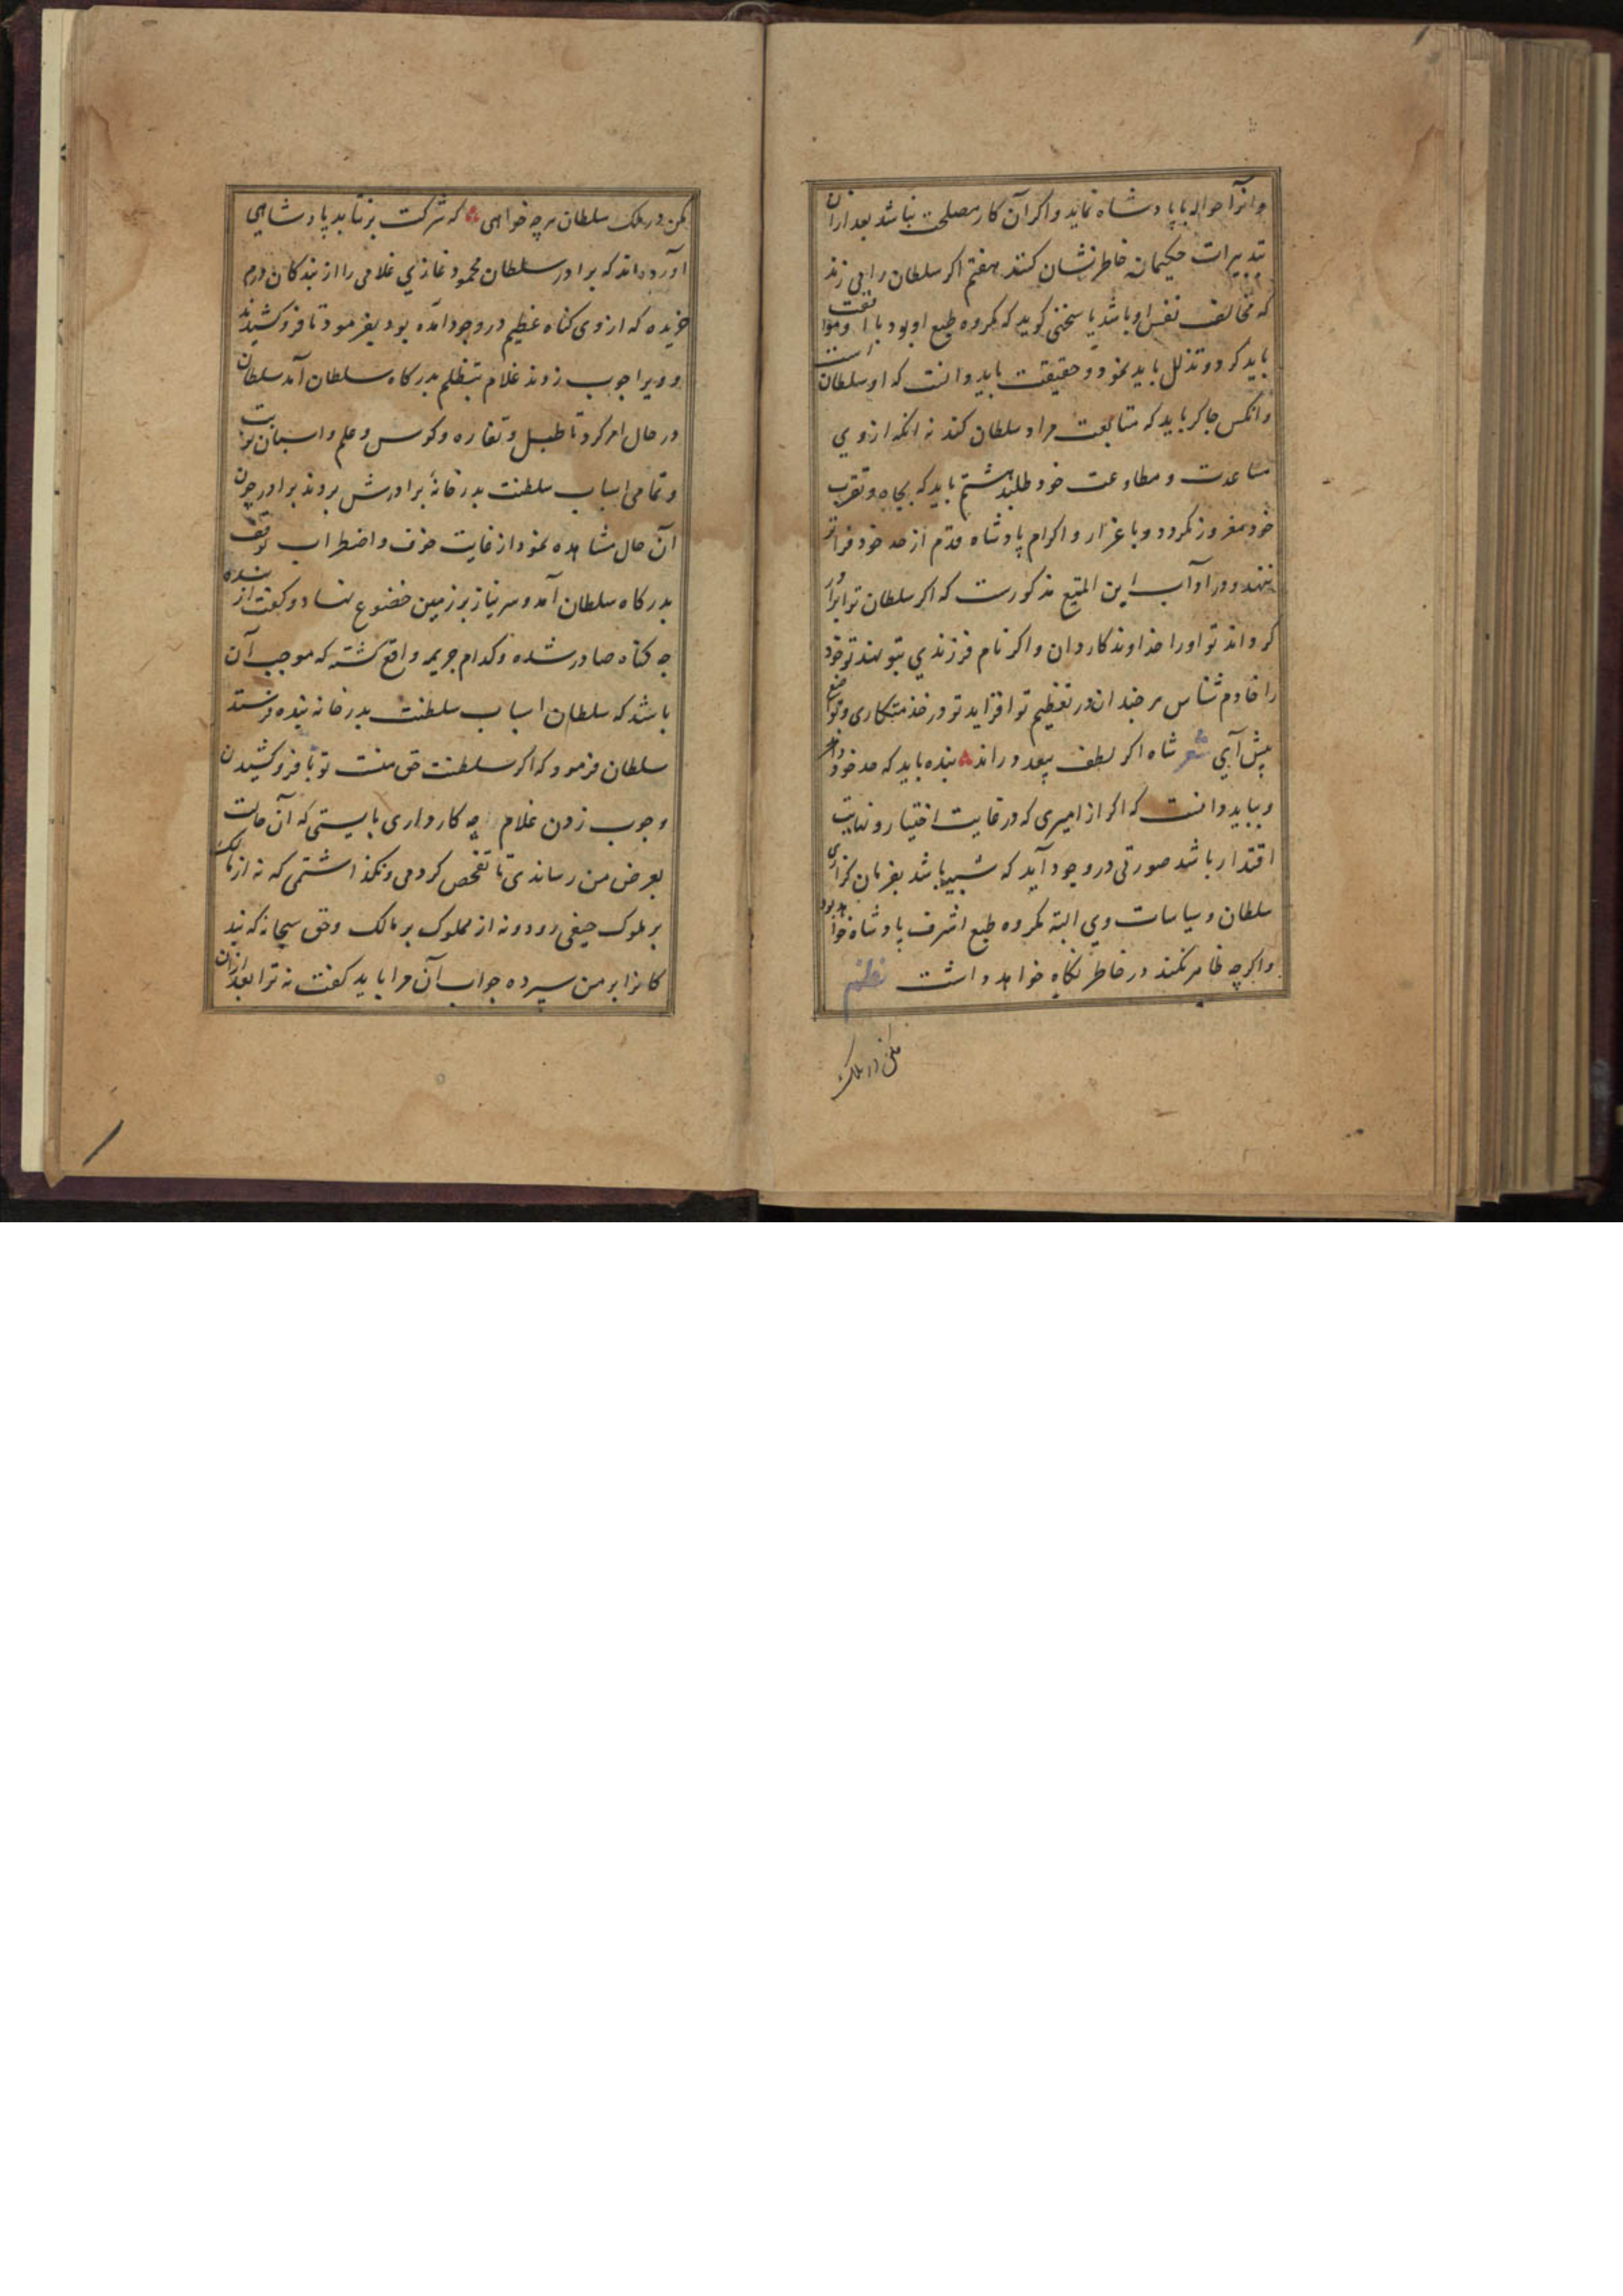 و انرا حواله بپادشاه نماید و اکر آن کار مصلحت نباشد بعد ازان
بتدبیرات حکیمانه خاطرنشان کنند هفتم اکر سلطان رایی زند
که مخالف نفس او باشد یا سخنی کوید که مکروه طبع او بود با او موافقت
باید کرد و تذلل باید نمود و حقیقت باید دانست که او سلطان است
و انکس چاکر باید که متابعت مراد سلطان کند نه انکه از وی
مساعدت و مطاوعت خود طلبد هشتم باید که بجاه و تقرب
خود مغرور نکردد و باعزاز و اکرام پادشاه قدم از حد خود فراتر
ننهد و در اداب ابن المقفع مذکورست که اکر سلطان ترا برادر
کرداند تو او را خداوندکار دان و اکر نام فرزندی بتو نهد تو خود
را خادم شناس هر چند ان در تعظیم تو افزاید تو در خدمتکاری و تواضع
پیش آیی شعر شاه اکر لطف بیعدد راند بنده باید که حد خود داند
و بباید دانست که اکر از امیری که در غایت اختیار و نهایت
اقتدار باشد صورتی در وجود آید که شبیه باشد بفرمان کزاری
سلطان و سیاسات وی البته مکروه طبع اشرف پادشاه خواهد بود
و اکرچه ظاهر نکند در خاطر نکاه خواهد داشت نظم
مکن در ملک
مکن در ملک سلطان هر چه خواهی که شرکت بر نتابد پادشاهی
آورده‌اند که برادر سلطان محمود غازی غلامی را از بندکان درم
خریده که از وی کناه عظیم در وجود آمده بود بفرمود تا فروکشیدند
و ویرا چوب زدند غلام بتظلم بدرکاه سلطان آمد سلطان
در حال امر کرد تا طبل و نقاره و کوس و علم و اسبان نوبت
و تمامی اسباب سلطنت بدر خانهٔ برادرش بردند برادر چون
آن حال مشاهده نمود از غایت خوف و اضطراب بی توقف
بدرکاه سلطان آمد و سر نیاز بر زمین خضوع نهاد و کفت از بنده
چه کناه صادر شده و کدام جریمه واقع کشته که موجب آن
باشد که سلطان اسباب سلطنت بدر خانه بنده فرستد
سلطان فرمود که اکر سلطنت حق منست تو با فروکشیدن
و چوب زدن غلام چه کار داری بایستی که آن حالت
بعرض من رساندی تا تفحص کردمی و نکذاشتمی که نه از مالک
بر ملوک حیفی رود و نه از مملوک بر مالک و حق سبحانه که بند
کانرا بر من سپرده جواب آن مرا باید کفت نه ترا بعد ازان